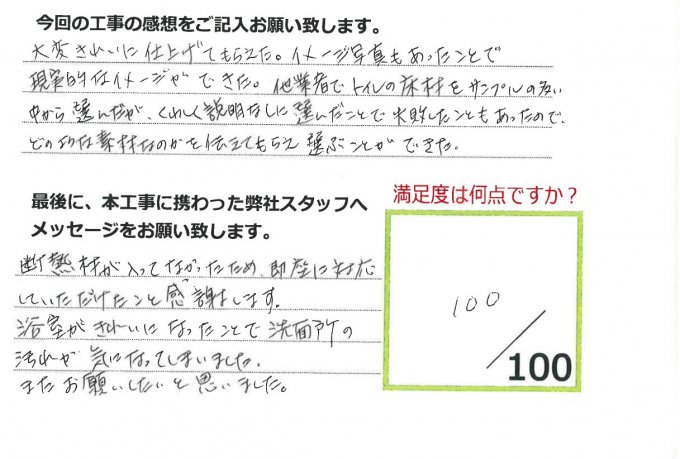 今回の工事の感想をご記入お願い致します。
大変きれいに仕上げてもらえた。イメージ写真もあったことで
現実的なイメージができた。他業者でトイレの床材をサンプルの多い
中から選んだが、くわしく説明なしに選んだことで失敗したこともあったので、
どのような素材なのかを伝えてもらえ選ぶことができた。
最後に、本工事に携わった弊社スタッフへ
メッセージをお願い致します。
断熱材が入ってなかったため、即座に対応
していただけたこと感謝します。
浴室がきれいになったことで洗面所の
汚れが気になってしまいました。
またお願いしたいと思いました。
満足度は何点ですか？
100
100